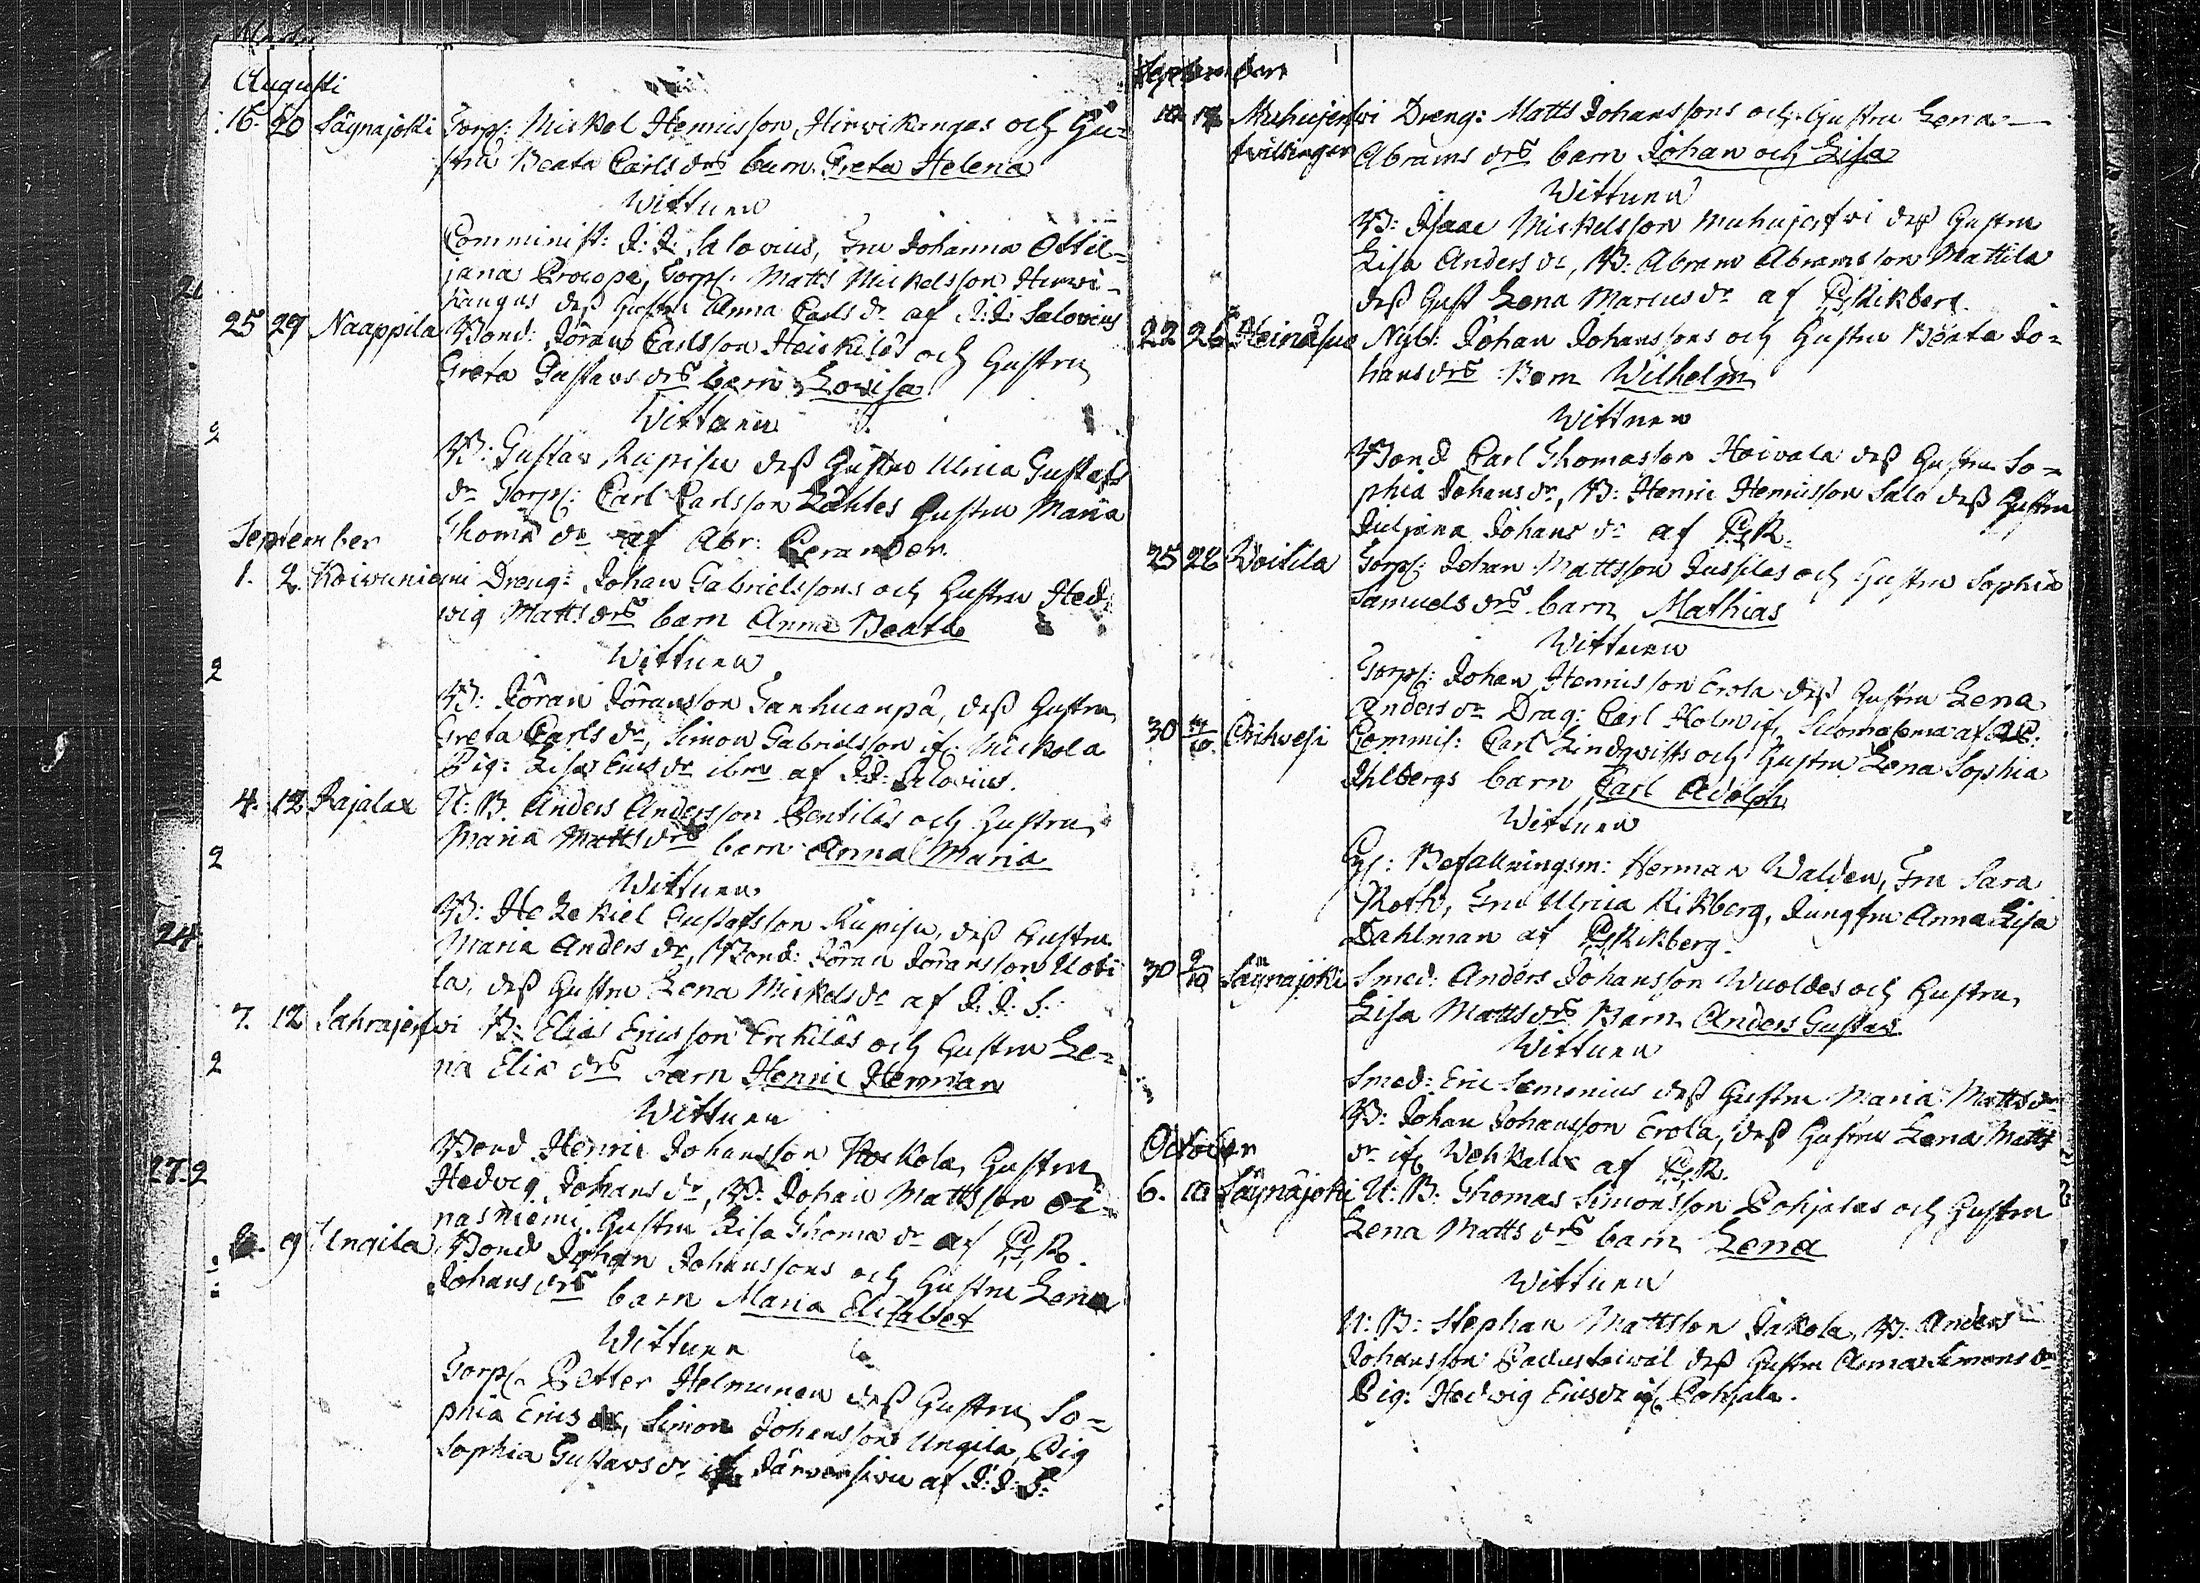 Augusti
16. 20 Säynajoki Torp: Mickel Henricsson Hirvikangas och Hu=
stru Beata Carls drs barn Greta Helena
Wittnen
Comminist: J: J: Salovius, Fru Johanna Ottil=
jana Procopæ, Torp: Matts Mickelsson Hirwi=
kangas dess Hustru Anna Carls dr af J: J: Salovius
25 29 Naappila Bond: Jöran Carlsson Heickilas och Hustru
Greta Gustavs drs barn Lovisa
Wittnen
B: Gustav Rupisu dess Hustru Ulrica Gustafs
dr Torp: Carl Carlsson Lahtes Hustru Maria
Thoma dr af Abr: Perander
September
1. 2. Koivuniemi Dreng: Johan Gabrielssons och Hustru Hed=
vig Matts drs barn Anna Beata
Wittnen
B: Jöran Jöransson Tanhuanpä, dess Hustru
Greta Carls dr, Simon Gabrielsson if: Mickola
Pig: Lisa Erics dr ibm af J: J: Salovius.
4. 12 Rajalax N: B. Anders Andersson Pentilas och Hustru
Maria Matts drs barn Anna Maria
Wittnen
B: Hezekiel Gustafsson Rupisu, dess Hustru
Maria Anders dr, Bond: Jöran Jöransson Uoti
la, dess Hustru Lena Mickels dr af J: J: S:
7. 12 Sahrajerfvi B: Elias Ericsson Erkilas och Hustru Le=
na Elia drs Barn Henric Herman
Wittnen
Bond Henric Johansson Kockola, Hustru
Hedvig Johans dr, B: Johan Mattsson Oi=
nasniemi Hustru Lisa Thoma dr af P: R.
9 Ungila Bond Johan Johanssons och Hustru Lena
Johans drs barn Maria Elisabet
Wittnen
Torp: Petter Helminen dess Hustru So=
phia Erics dr, Simon Johansson Ungila, Pig
Sophia Gustavs dr if Järvensivu af J: J: S:
September
10 17 Muhujerfwi Dreng: Matts Johanssons och Hustru Lena
twillingar Abrams drs barn Johan och Lisa
Wittnen
B: Isaac Mickelsson Muhujerfwi dess Hustru
Lisa Anders dr, B: Abram Abramsson Mattila
dess Hust Lena Marcus dr af P: Rikberg.
22 26 Heinäsuo Nyb: Johan Johanssons och Hustru Beata Jo=
hans drs Barn Wilhelm
Wittnen
Bond Carl Thomasson Hoivala dess Hustru So=
phia Johans dr, B: Henric Henricsson Salo dess Hustru
Juljana Johans dr af P: R.
25 28 Woitila Torp: Johan Mattsson Jussilas och Hustru Sophia
Samuels drs barn Mathias
Wittnen
Torp: Johan Henricsson Erola dess Hustru Lena
Anders dr Drag: Carl Holm if af
30 Orihvesi Commis: Carl Lindqvists och Hustru Lena Sophia
Ihlbergs barn Carl Adolph
Wittnen
Befallningsm: Herman Walden, Fru Sara
Roth, Fru Ulrica Rikberg, Jungfru Anna Lisa
Dahlman af P: Rikberg.
30 9/10 Säynajoki Smed: Anders Johansson Wuoldes och Hustru
Lisa Matts drs Barn Anders Gustav
Wittnen
Smed: Eric Semenius dess Hustru Maria Matts dr
B: Johan Johansson Erola, dess Hustru Lena Matts
dr if Wehkalax af P: R.
October
6. 10 Säynäjoki N: B: Thomas Simonsson Pohjalas och Hustru
Lena Matts drs barn Lena
Wittnen
N: B: Stephan Mattsson Jakola, B: Anders
Johansson dess Hustru Anna Simons dr
Pig: Hedvig Erics dr if Pohjala.